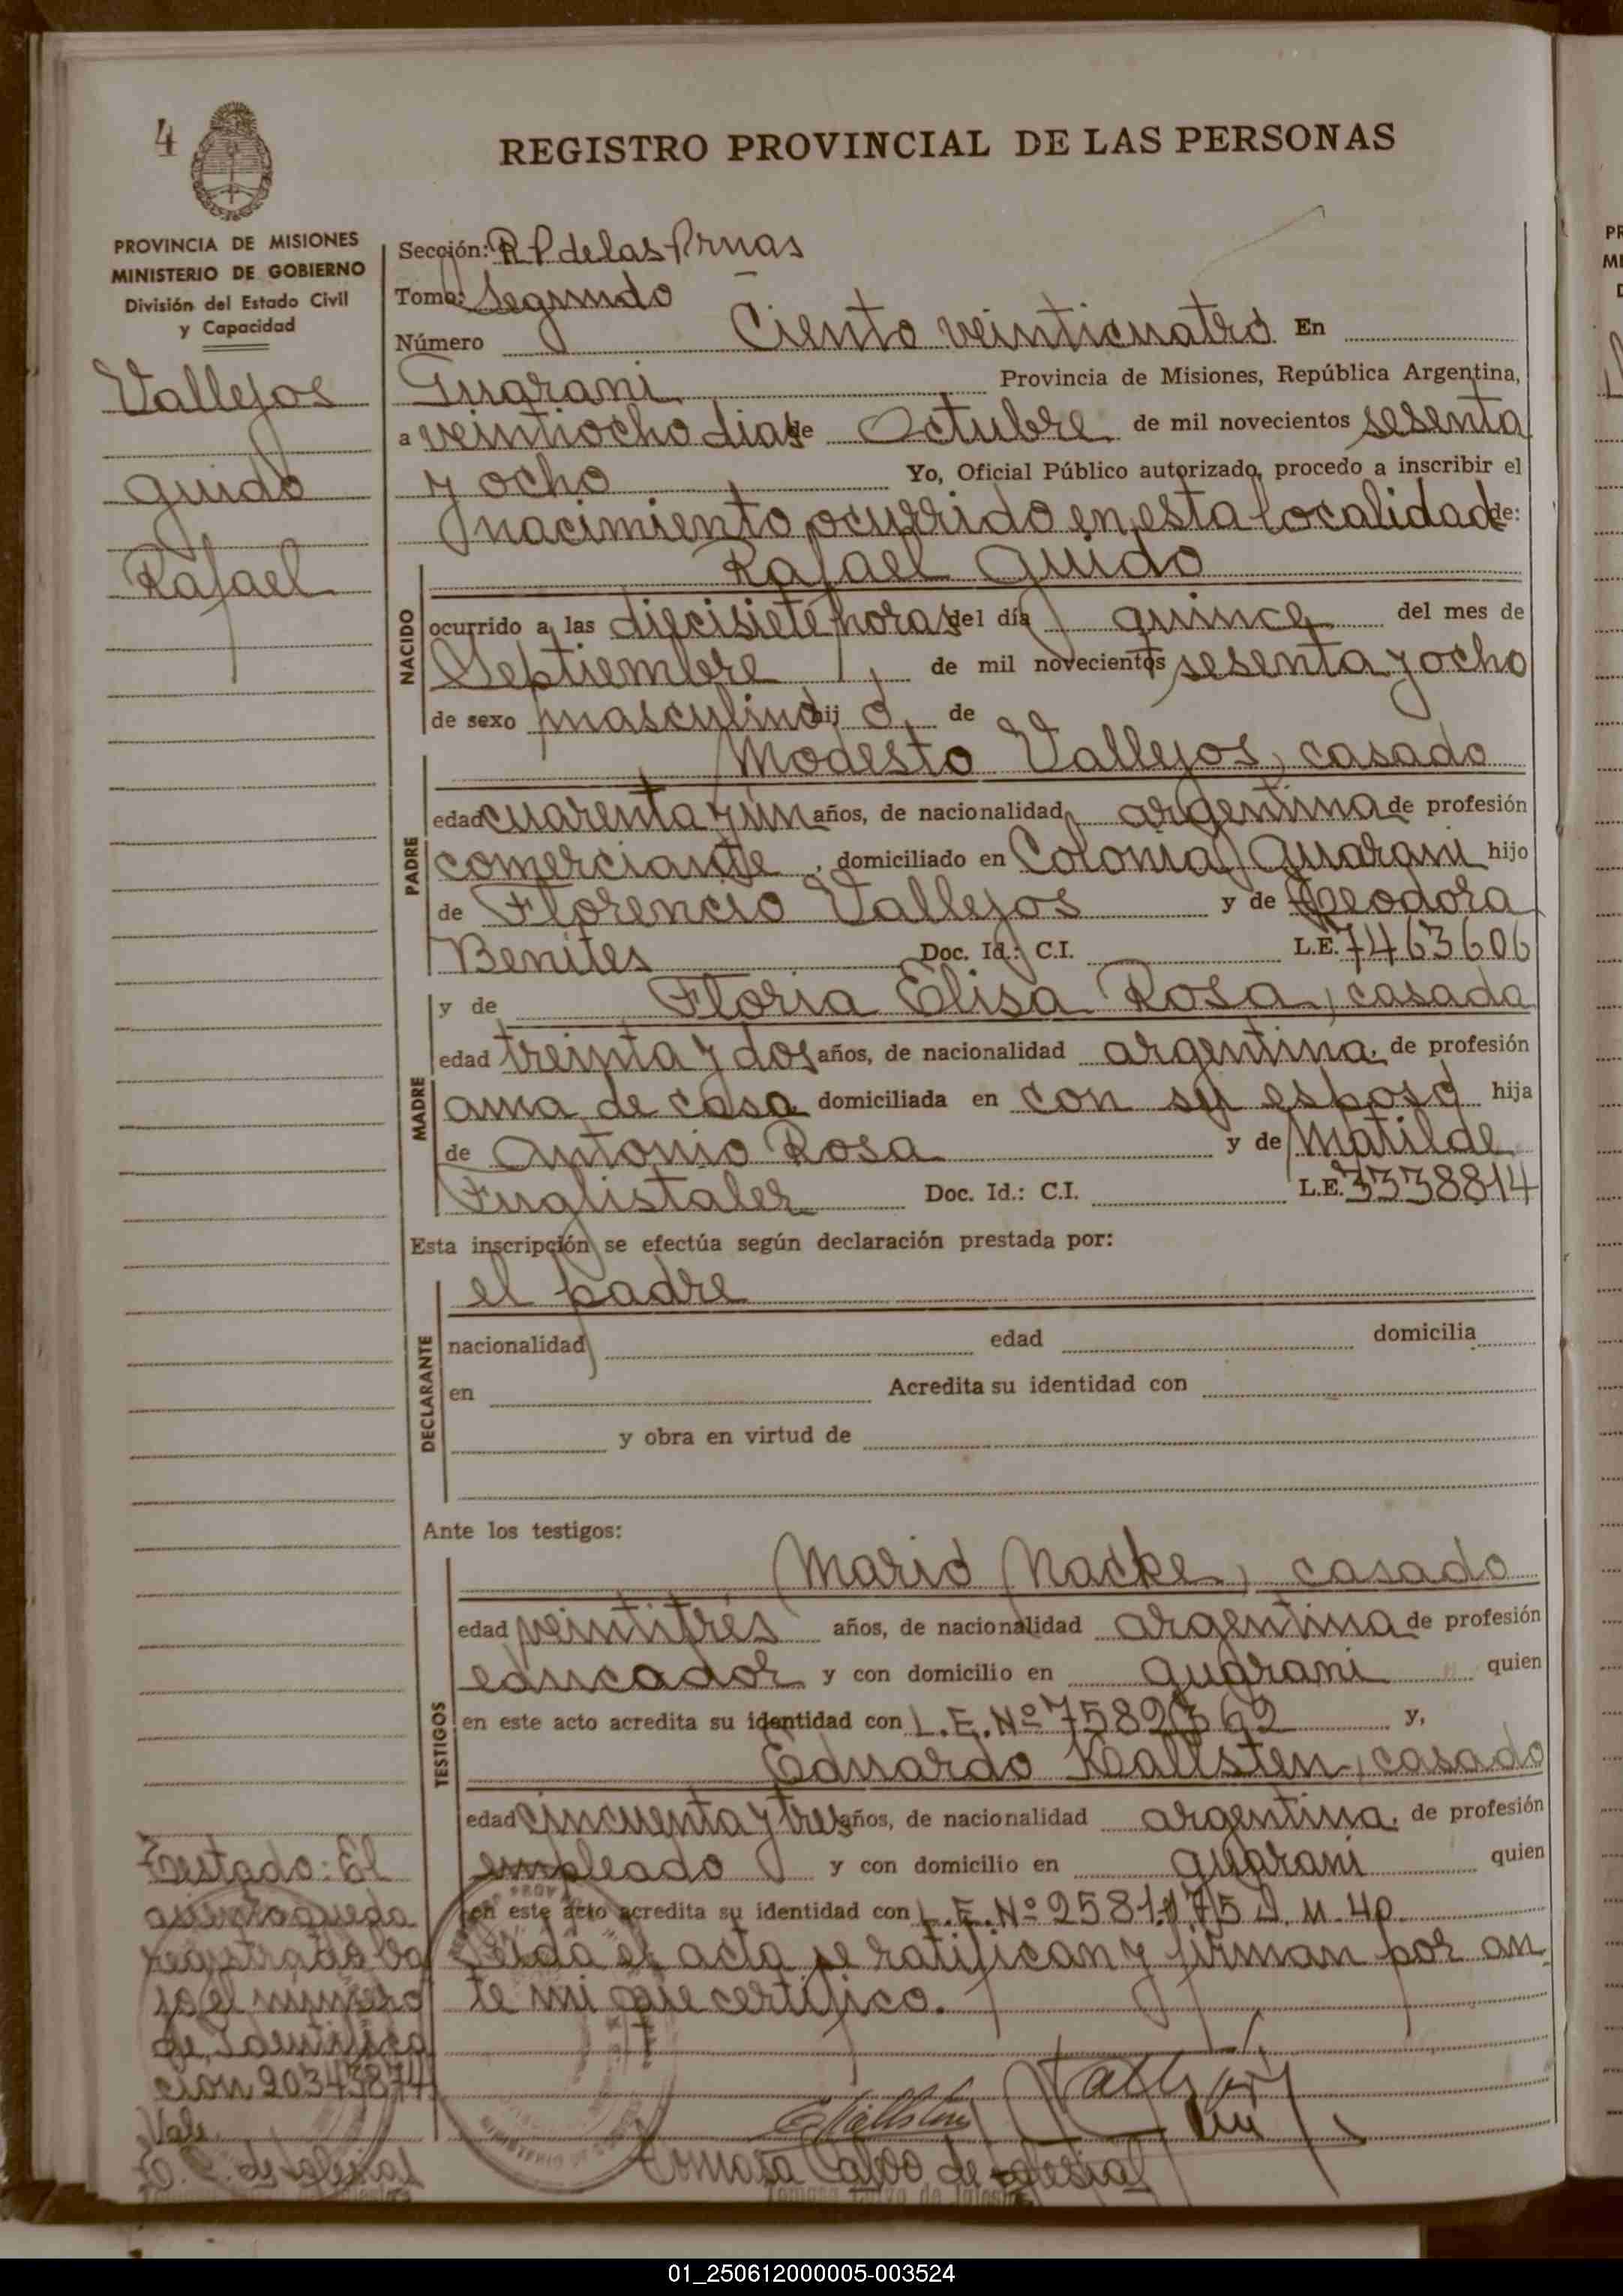 4
REGISTRO PROVINCIAL DE LAS PERSONAS
PROVINCIA DE MISIONES
MINISTERIO DE GOBIERNO
División del Estado Civil
y Capacidad
Vallejos
Guido
Rafael
Sección: R P de las Prnas
Tomo: Segundo
Número Ciento veinticuatro En
Guarani Provincia de Misiones, República Argentina,
a veintiocho dias de Octubre de mil novecientos sesenta
y ocho Yo, Oficial Público autorizado, procedo a inscribir el
nacimiento ocurrido en esta localidad de:
Rafael Guido
NACIDO
ocurrido a las diecisiete horas del día quince del mes de
Septiembre de mil novecientos sesenta y ocho
de sexo masculino hij o de
Modesto Vallejos, casado
PADRE
edad cuarenta y un años, de nacionalidad argentina de profesión
comerciante, domiciliado en Colonia Guarani hijo
de Florencio Vallejos y de Teodora
Benites Doc. Id.: C.I. L.E. 7463606
y de Floria Elisa Rosa, casada
MADRE
edad treinta y dos años, de nacionalidad argentina. de profesión
ama de casa domiciliada en con su esposo hija
de Antonio Rosa y de Matilde
Fuglistaler Doc. Id.: C.I. L.E. 3338814
Esta inscripción se efectúa según declaración prestada por:
el padre
DECLARANTE
nacionalidad edad domicilia
en Acredita su identidad con
y obra en virtud de
Ante los testigos:
Mario Nacke, casado
TESTIGOS
edad veintitres años, de nacionalidad argentina de profesión
educador y con domicilio en guarani quien
en este acto acredita su identidad con L.E. Nº 7582362 y,
Eduardo Kallsten, casado
edad cincuenta y tres años, de nacionalidad argentina. de profesión
empleado y con domicilio en guarani quien
en este acto acredita su identidad con L.E. Nº 2581175 D. M. 40.
Leida el acta se ratifican y firman por an
te mi que certifico.
Testado: El
queda
registrado ba
jo el número
de Identifica
cion 20343874
Vale
Tomasa Calvo de Iglesias
T. C. de Iglesias
01_250612000005-003524